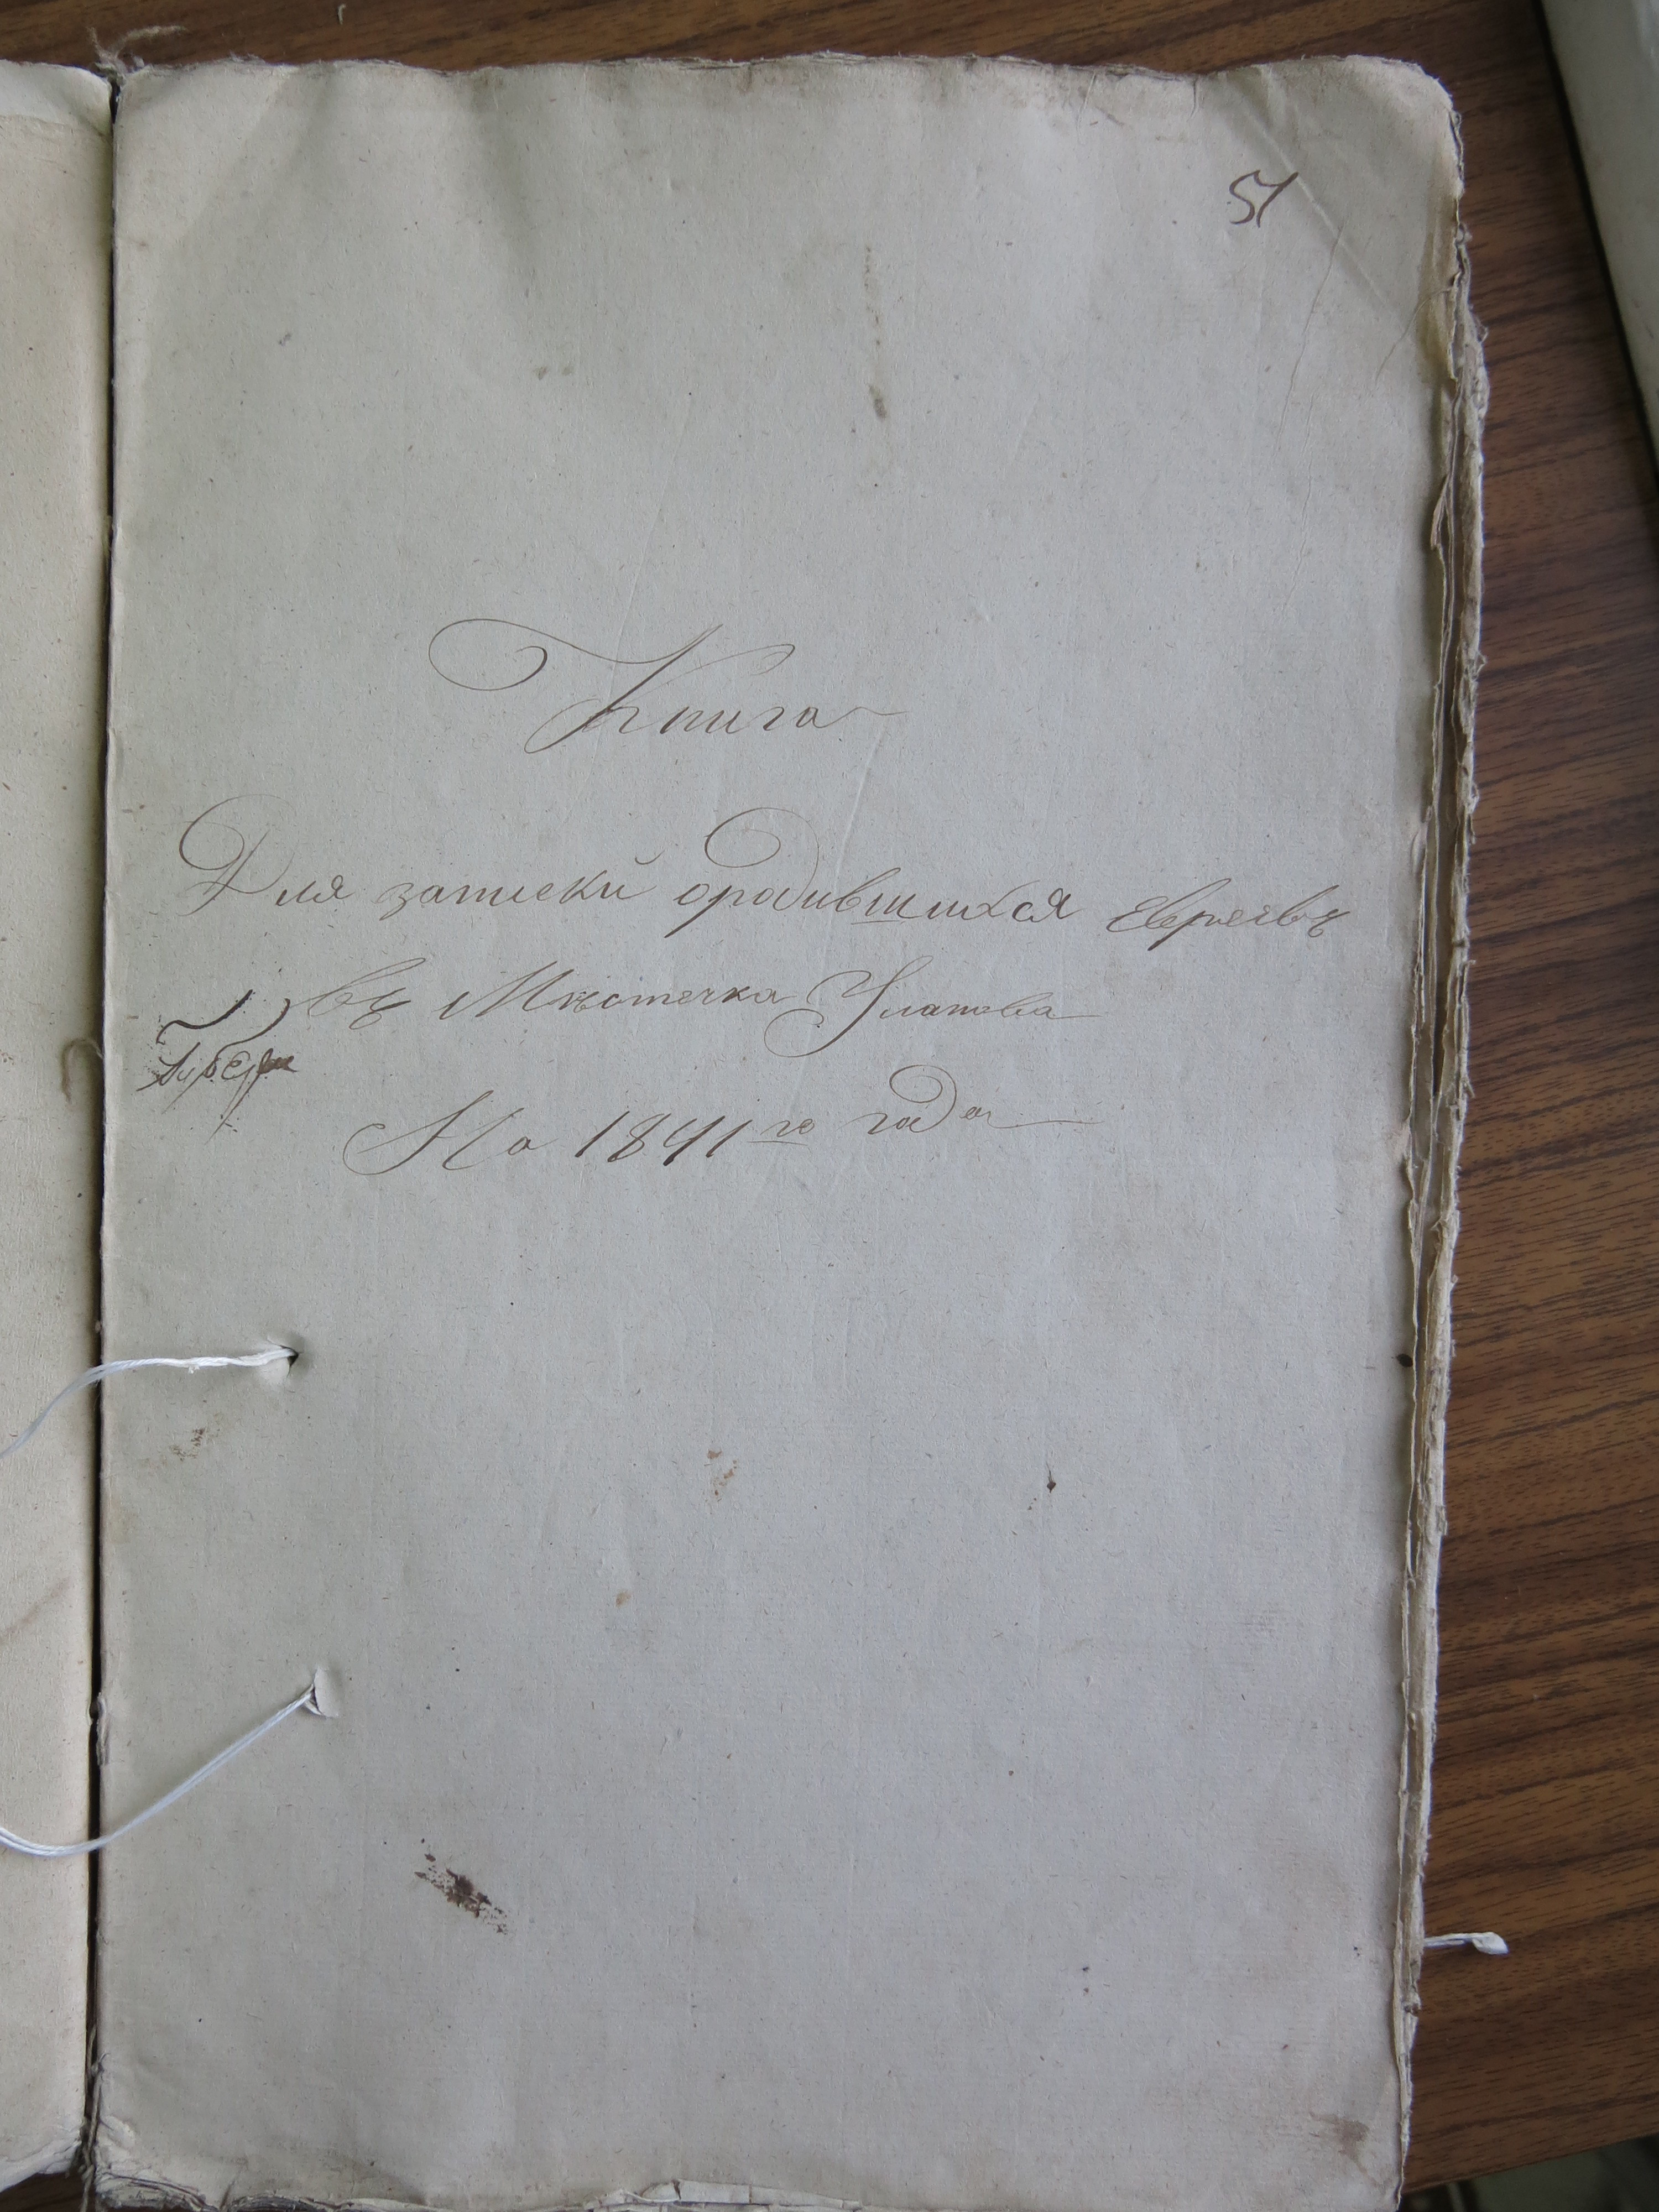 51
Книга
Для записки ородившихся Евреевъ
въ Мѣстечка Уланова
На 1841го года